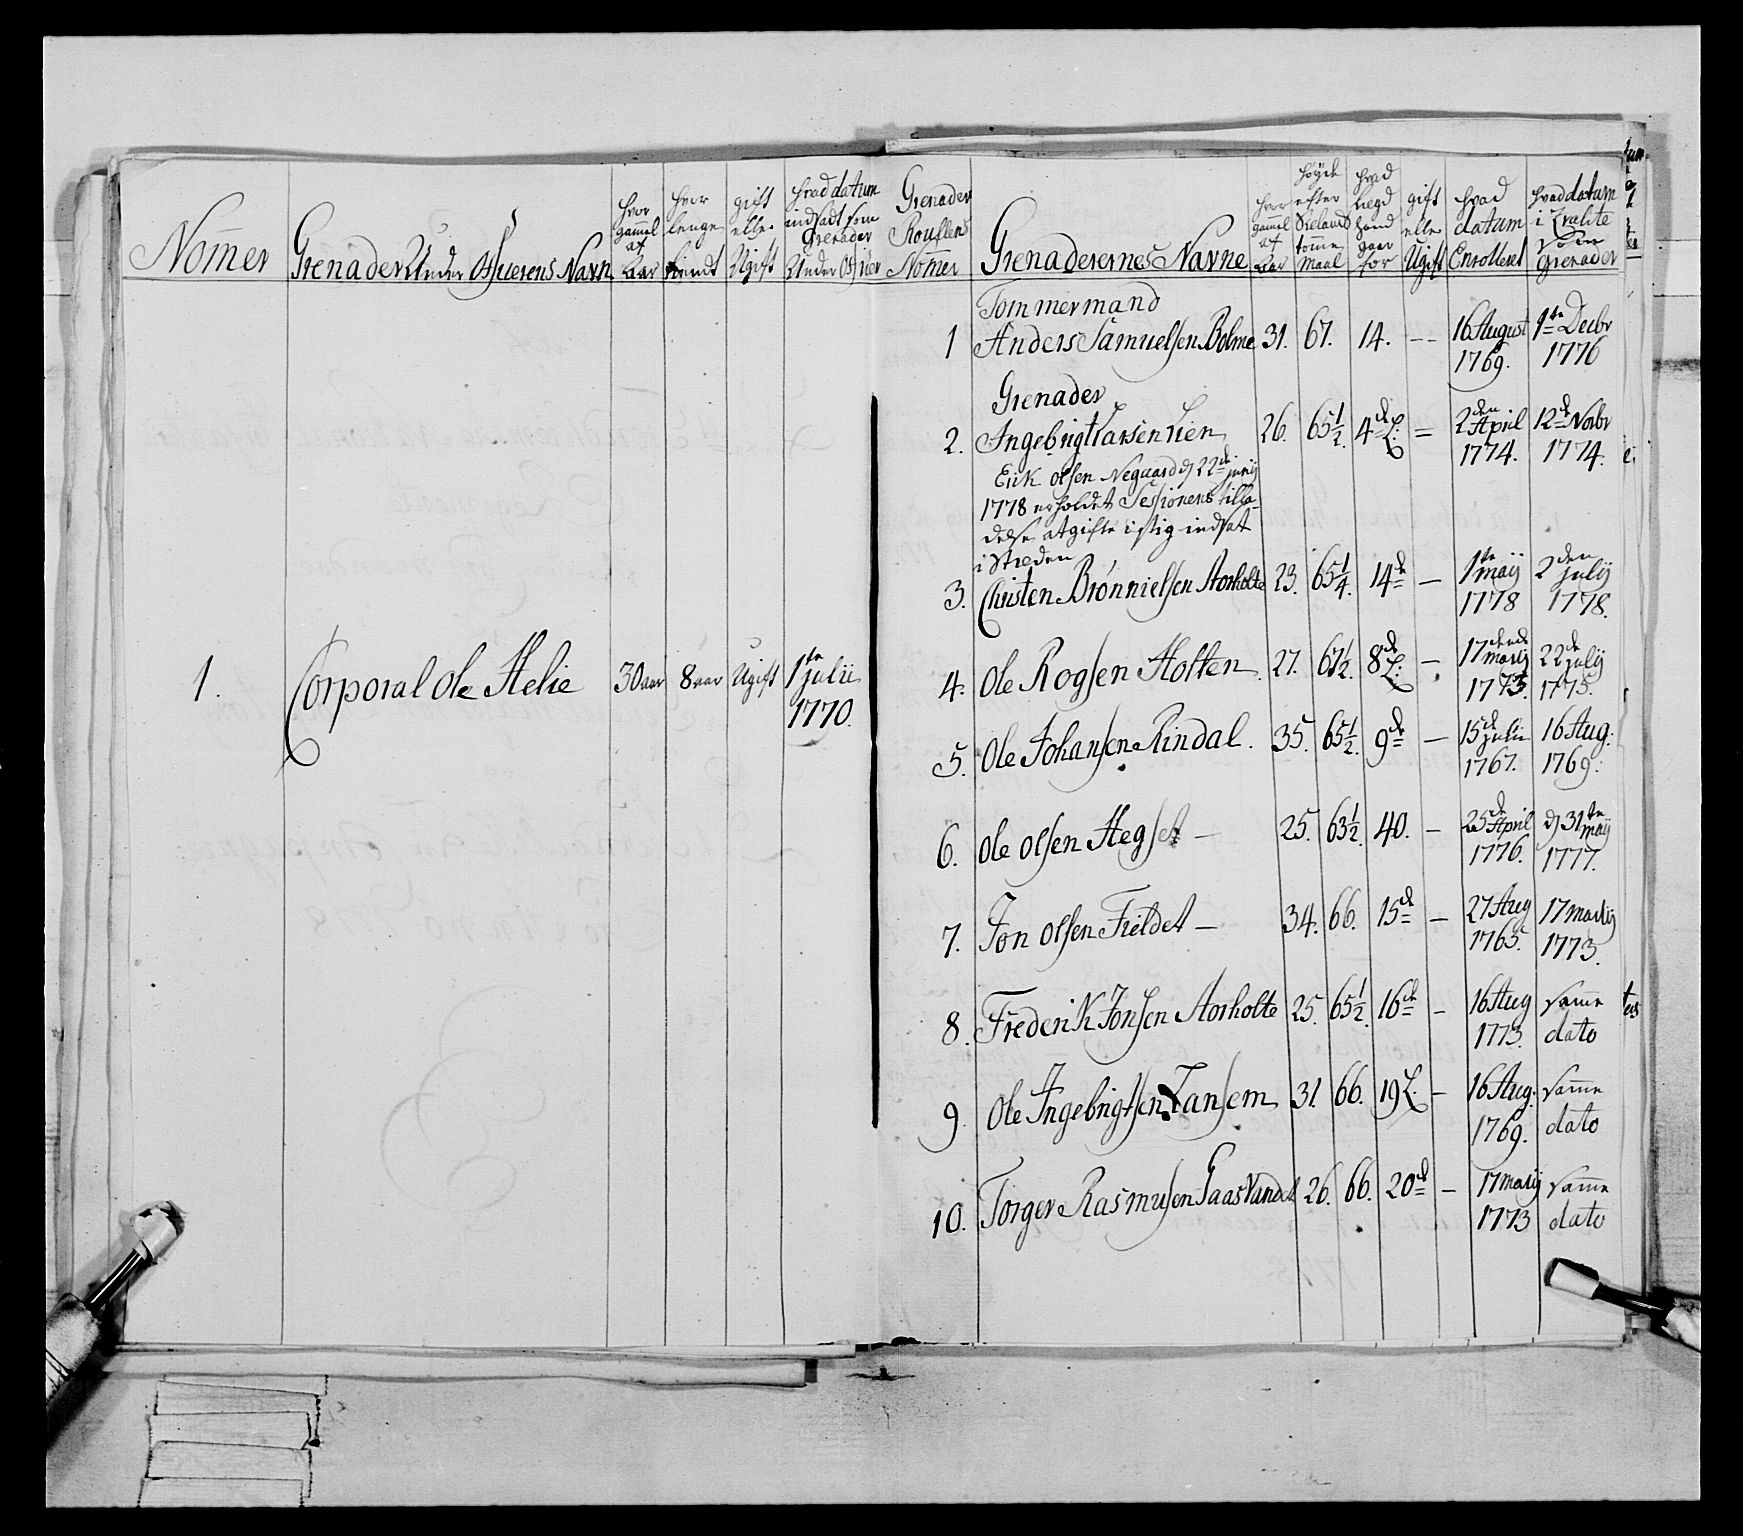 Nom̄er
Grenader Under Officerens Navn
hvor gam̄el af Aar
hvor lenge tient
gift elle Ugift
hvad datum indsadt som Grenader Under Officer
Grenader Roullens Nom̄er
Grenaderernes Navne
hvor gam̄el af Aar
høyde efter Sielands tom̄e Maal
hvad Lægd hand gaar for
gift elle Ugift
hvad datum Enrolleret
hvad datum i Qvalite som Grenader
Tommermand
1 Anders Samuelsen Bolme 31. 67. 14. -- 16 August 1769. 1te Decbr 1776
Grenader
2. Ingebrigt Larsen Lien 26. 65½ 4de L: = 2den April 1774. 12te Novbr 1774.
Erik Olsen Negaard d 22de junij
1778 erholdet Sessionens tilla-
delse at gifte istig indsat
i Steden
3. Christen Brønnielsen Aorholte 23. 65¼. 14de — 1te maij 1778 2den julij 1778.
1. Corporal Ole Helie 30 aar 8 aar Ugift 1te julii 1770.
4. Ole Rogsen Holten 27. 67½. 8de L: — 17dende martij 1773. 22de julij 1775.
5. Ole Johansen Rindal. 35. 65½. 9de — 15de julii 1767. 16 Aug: 1769.
6. Ole Olsen Hegset — 25. 63½. 40. — 25de April 1776. d 31te maij 1777.
7. Jon Olsen Fieldet — 34. 66. 15de — 27 Aug 1765. 17 martij 1773.
8. Frederik Jonsen Aorholte 25. 65½. 16de — 16 Aug 1773. sam̄e dato
9. Ole Ingebrigtsen Tansem 31. 66. 19 L. — 16 Aug: 1769. sam̄e dato
10. Torger Rasmusen Gaasvandet 26. 66. 20de — 17 martij 1773 sam̄e dato